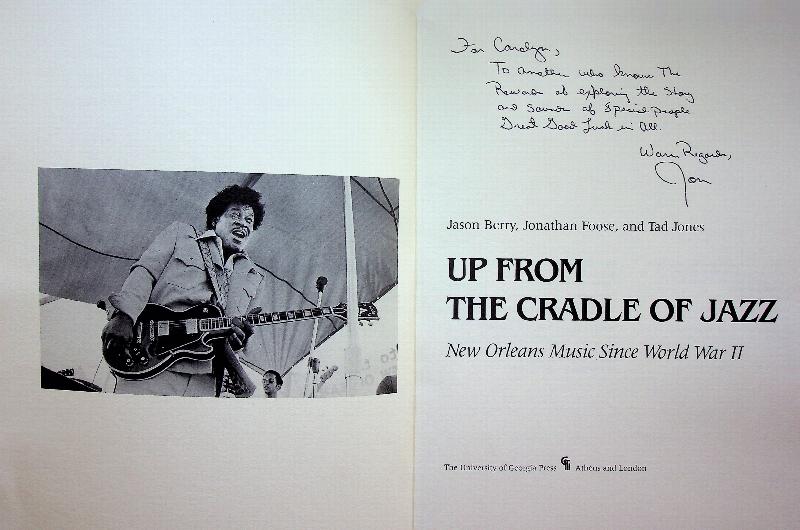 For Carolyn,
To another who knows The
Rewards of exploring the Story
and Sounds of Special people
Great Good Luck in All.
Warm Regards,
Jon
Jason Berry, Jonathan Foose, and Tad Jones
UP FROM
THE CRADLE OF JAZZ
New Orleans Music Since World War II
The University of Georgia Press Athens and London